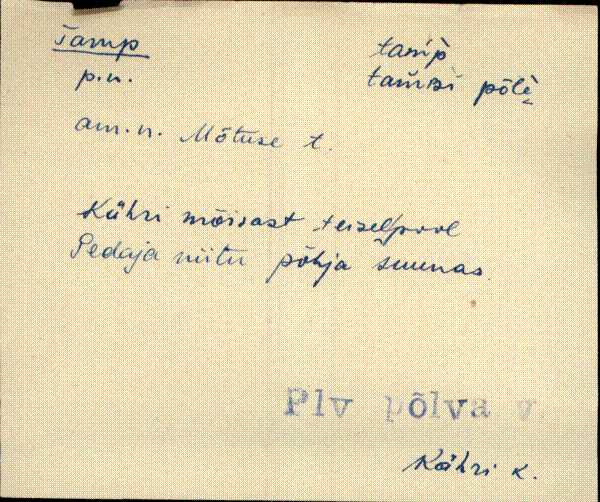 Tamp
tam̀p̀
p.n.
tam̀ʙi põlè
am.n. Mõtuse t.
Kähri mõisast teiselpool
Pedaja niitu põhja suunas.
Plv põlva v.
Kähri k.